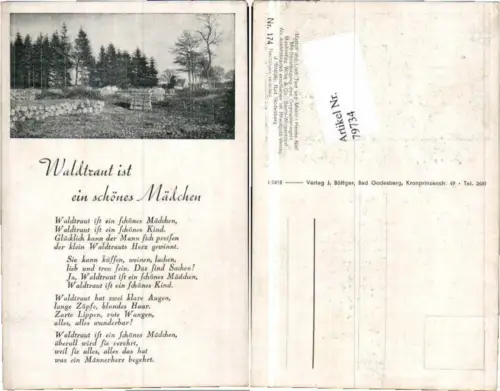 Waldtraut ist
ein schönes Mädchen
Waldtraut ist ein schönes Mädchen,
Waldtraut ist ein schönes Kind.
Glücklich kann der Mann sich preisen
der klein Waldtrauts Herz gewinnt.
Sie kann küssen, weinen, lachen,
lieb und treu sein. Das sind Sachen!
Ja, Waldtraut ist ein schönes Mädchen,
Waldtraut ist ein schönes Kind.
Waldtraut hat zwei klare Augen,
lange Zöpfe, blondes Haar.
Zarte Lippen, rote Wangen,
alles, alles wunderbar!
Waldtraut ist ein schönes Mädchen,
überall wird sie verehrt,
weil sie alles, alles das hat
was ein Männerherz begehrt.
Nr. 174
Artikel Nr.
79734
Verlag J. Böttger, Bad Godesberg, Kronprinzenstr. 49 • Tel. 2601